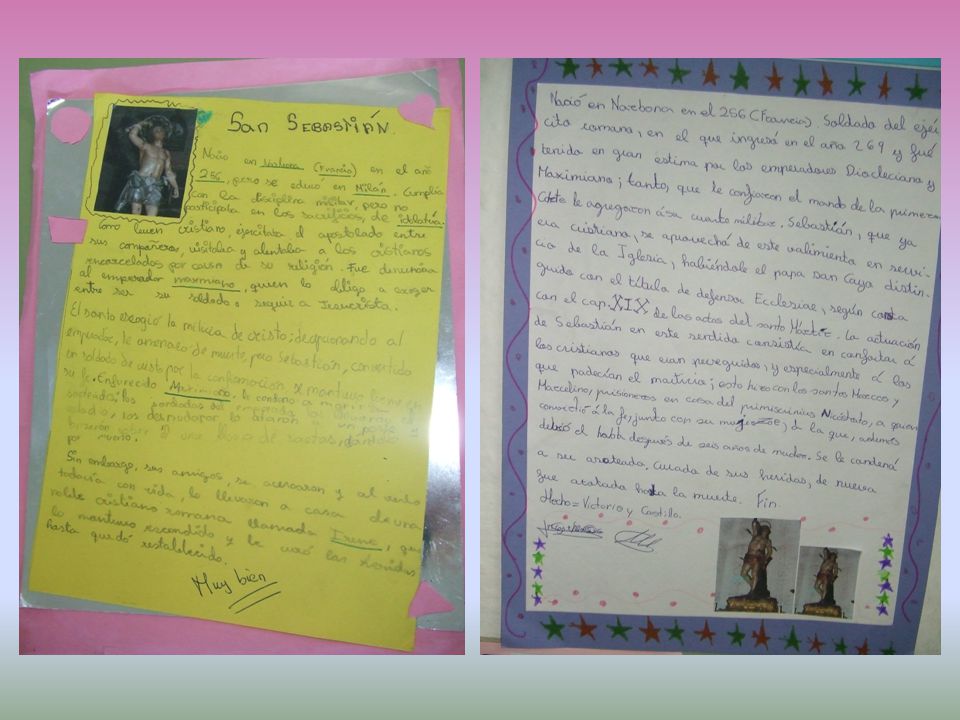 San Sebastián.
Nacio en (Francia) en el año
256, pero se educó en Milán. Cumplía
con la disciplina militar, pero no
participaba en los sacrificios, de idolatria.
Como buen cristiano, ejercitaba el apostolado entre
sus compañeros, visitaba y alentaba a los cristianos
encarcelados por causa de su religión. Fue denunciado
al emperador maximiano, quien lo obligo a escoger
entre ser su soldado o seguir a Jesucristo.
El santo escogió la milicia de cristo; desairando al
emperador, le amenazo de muerte, pero Sebastián, convertido
en soldado de cristo por la confirmacion se mantuvo firme en
su fe. Enfurecido Maximiano, le condeno a morir
los soldados del emperador los llevaron al
estadio, los desnudaron lo ataron a un poste y
sobre él una lluvia de saetas, dándolo
por muerto.
Sin embargo, sus amigos, se acercaron y al verlo
todavía con vida, lo llevaron a casa de una
noble cristiana romana llamada Irene, que
lo mantuvo escondido y le curó las heridas
hasta que dó restablecido.
Muy bien
Nació en Narbona en el 256 (Francia). Soldado del ejér
cito romano, en el que ingresó en el año 269 y fué
tenido en gran estima por los emperadores Diocleciano y
Maximiano; tanto, que le confiaron el mando de la primera
le agregaron cuarto militar. Sebastián, que ya
era cristiano, se aprovechó de este valimiento en servi-
cio de la Iglesia, habiéndole el papa san Cayo distin-
guido con el título de defensor Ecclesiae, según consta
con el cap. XIX, de las actos del santo Martir. La actuación
de Sebastián en este sentido consistía en confortar á
los cristianos que eran perseguidos, y especialmente á los
que padecían el martirio; esto hizo con los santos Marcos y
Marcelino, prisioneros en casa del primiscrinius Nicóstrato, a quien
convirtió á la fe, junto con su mujer Zoe, á la que, antes
debió el habla después de seis años de mudez. Se le condenó
a ser asateado, curado de sus heridas, de nuevo
fue azotado hasta la muerte. Fin.
Hecho = Victorio y Castillo.